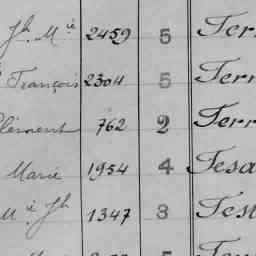 Jh Mie 2459 5 Terr
François 2304 5 Terr
Clément 762 2 Terr
Marie 1954 4 Tesa
Mie Jh 1347 3 Test